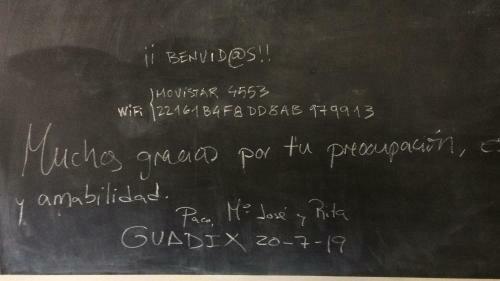 ¡¡ BENVID@S!!
MOVISTAR 4553
WiFi 22161B4F8DD8AB979913
Muchas gracias por tu preocupación,
y amabilidad.
Paco, Mª José y Rita
GUADIX 20-7-19